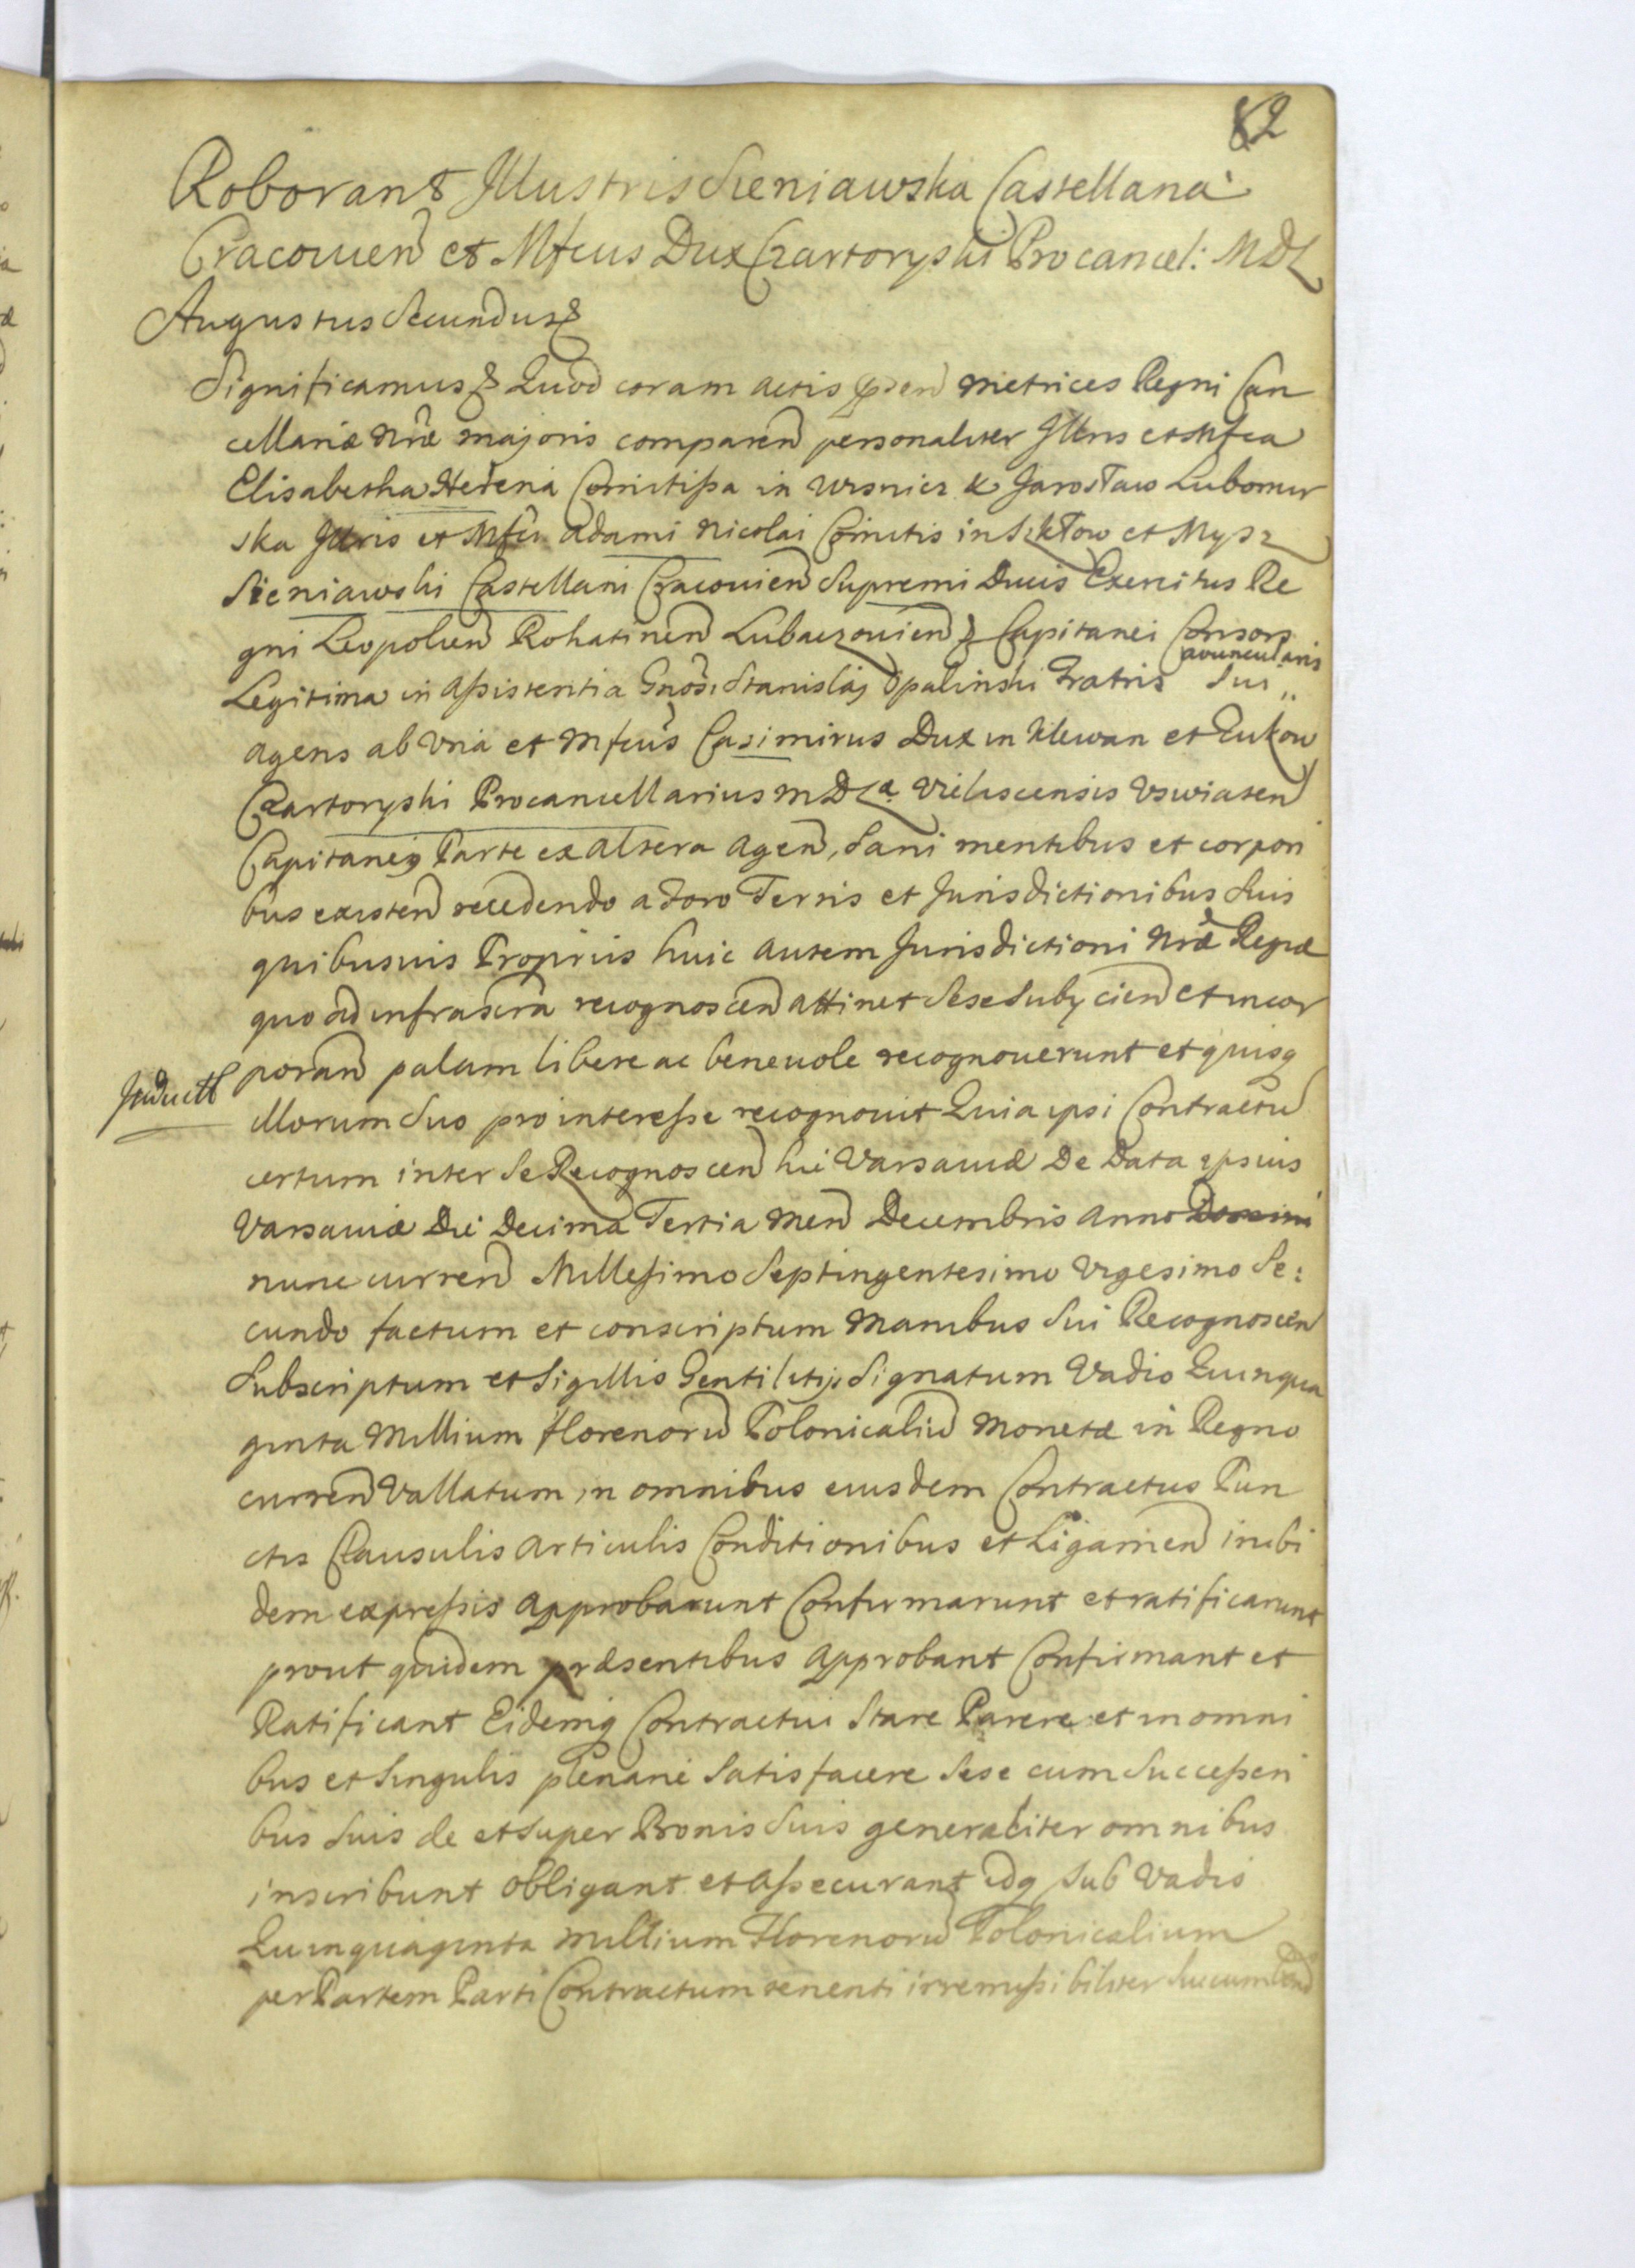 82
Roborant Illustris Sieniawska Castellana
Cracovien et Mfcus Dux Czartoryski Procancel: MDL
Augustus Secundus &
Significamus & Quod coram actis pnten Metrices Regni Can
cellariæ Nræ majoris comparen personaliter Illris et Mfca
Elisabetha Helena Comitissa in Wisnicz & Jarosław Lubomir
ska Illris et Mfci Adami Nicolai Comitis in Szkłow et Mysz
Sieniawski Castellani Cracovien Supremi Ducis Exercitus Re
gni Leopolien Rohatinen Lubaczovien & Capitanei Consors
Legitima in assistentia Gnosi Stanislaj Opalinski Fratris avuncularis Sui „
agens ab Una et Mfcus Casimirus Dux in Klewan et Zukow
Czartoryski Procancellarius MDL a. Vieliscensis Uswiaten
Capitaneq Parte ex altera Agen, Sani mentibus et corpori
bus existen recedendo a Foro Terris et Jurisdictionibus Suis
quibusvis Propriis huic autem Jurisdictioni Nræ Regiæ
quo ad infrascra recognoscen attinet Sese Subijcien et incor
poran palam libere ac benevole recognoverunt et quisq
Induct
illorum Suo pro interesse recognovit Quia ipsi Contractu
certum inter Se Recognoscen hic Varsaviæ De Data ipsius
Varsaviæ Die Decima Tertia Men Decembris Anno Domini
nunc curren Millesimo Septingentesimo Vigesimo Se:
cundo factum et conscriptum Manibus Sui Recognoscen
Subscriptum et Sigillis Gentilitijs Signatum Vadio Quinqua
ginta Millium florenoru Polonicaliu Monetæ in Regno
curren Vallatum in omnibus eiusdem Contractus Pun
ctis Clausulis Articulis Conditionibus et Ligamen inibi
dem expressis Approbarunt Confirmarunt et ratificarunt
prout quidem præsentibus Approbant Confirmant et
Ratificant Eidemq Contractui Stare Parere et in omni
bus et Singulis plenarie Satisfacere Sese cum Successori
bus Suis de et super Bonis Suis generaliter omnibus
inscribunt obligant et assecurant idq Sub Vadio
Quinquaginta Millium Florenoru Polonicalium
per Partem Parti Contractum tenenti irremissibiliter Succumbend